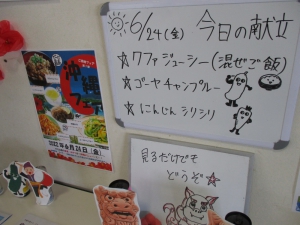 6/24(金) 今日の献立
☆クファジューシー(混ぜご飯)
☆ゴーヤチャンプルー
☆にんじんシリシリ
見るだけでも
どうぞ☆
沖縄
6月24日(金)